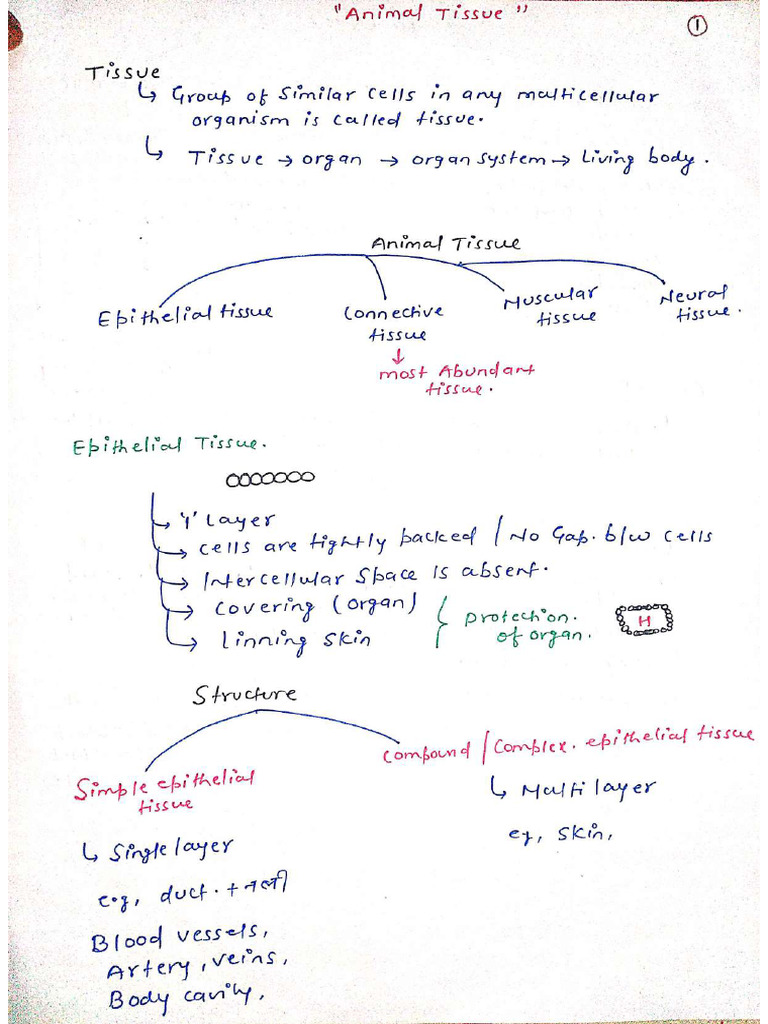 "Animal Tissue"
1
Tissue
↳ Group of similar cells in any multicellular
organism is called tissue.
↳ Tissue → organ → organ system → Living body.
Animal Tissue
Epithelial tissue
Connective
tissue
↓
most Abundant
tissue.
Muscular
tissue
Neural
tissue.
Epithelial Tissue.
'1' Layer
→ cells are tightly packed / No Gap. b/w cells
→ Intercellular space is absent.
→ covering (organ)
→ Linning skin
protection.
of organ.
H
Structure
Simple epithelial
tissue
↳ Single layer
e.g, duct. + नली
Blood vessels,
Artery, veins,
Body cavity,
Compound / Complex. epithelial tissue
↳ Multilayer
eg, skin,